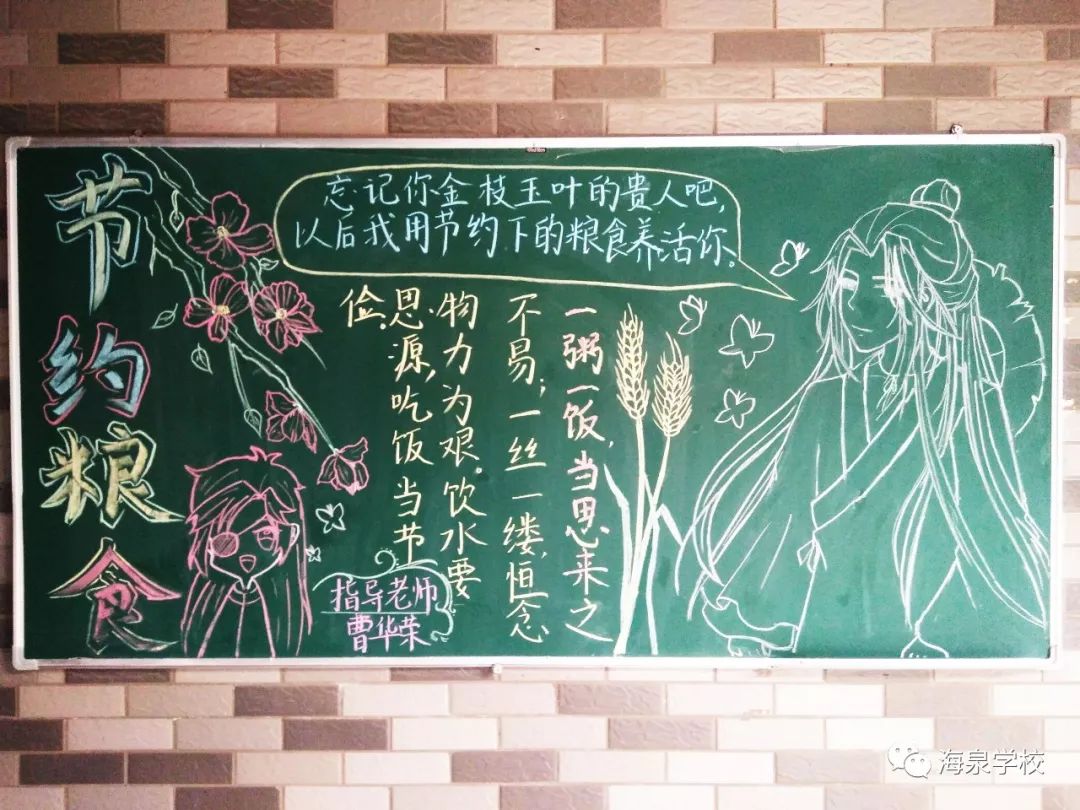 节约粮食
忘记你金枝玉叶的贵人吧,
以后我用节约下的粮食养活你。
一粥一饭,当思来之
不易;一丝一缕,恒念
物力为艰。饮水要
思源,吃饭当节
俭。
指导老师
曹华荣
海泉学校